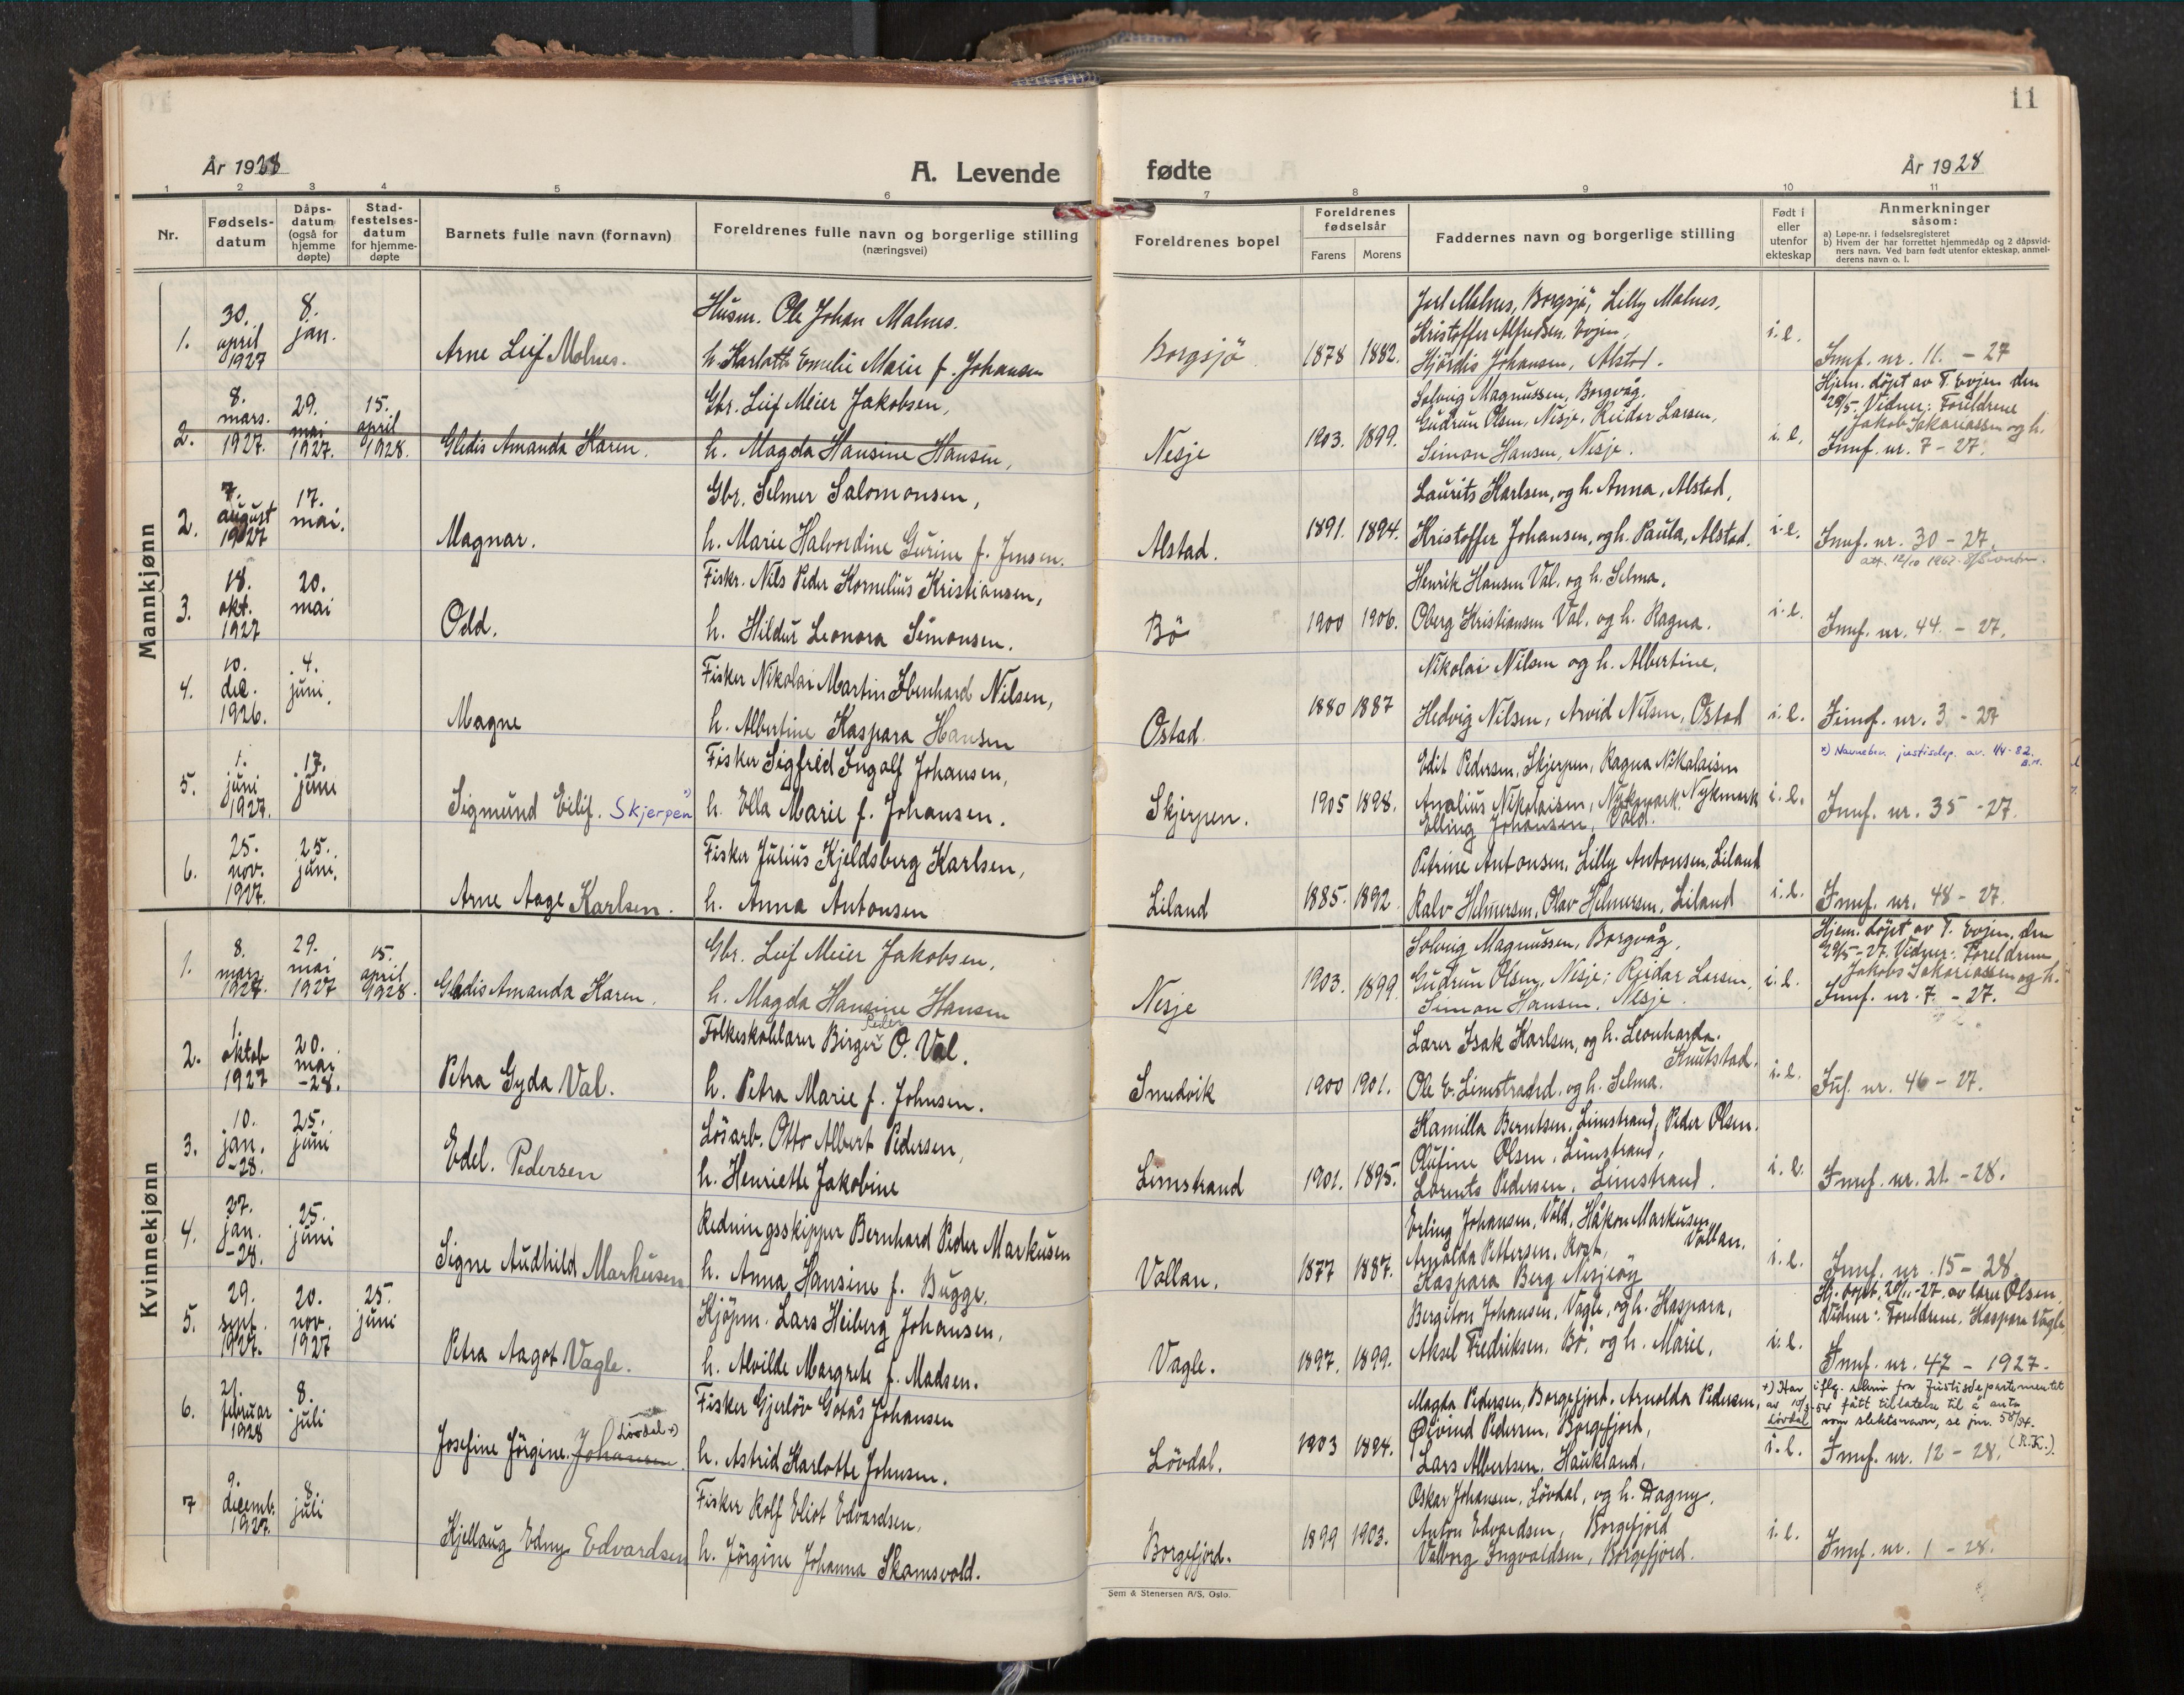 11
År 1928
A. Levende fødte
År 1928
1 2 3 4 5 6 7 8 9 10 11
Nr.
Fødsels-
datum
Dåps-
datum
(også for
hjemme
døpte)
Stad-
festelses-
datum
for hjemme-
døpte
Barnets fulle navn (fornavn)
Foreldrenes fulle navn og borgerlige stilling
(næringsvei)
Foreldrenes bopel
Foreldrenes
fødselsår
Farens
Morens
Faddernes navn og borgerlige stilling
Født i
eller
utenfor
ekteskap
Anmerkninger
såsom:
a) Løpe-nr. i fødselsregisteret
b) Hvem der har forrettet hjemmedåp og 2 dåpsvid-
ners navn. Ved barn født utenfor ekteskap, anmel-
derens navn o. l.
Mannkjønn
1.
30.
april
1927
8.
jan.
Arne Leif Malnes.
Husm. Ole Johan Malnes.
h. Karlotte Emelie Marie f. Johansen
Borgsjö
1878
1882.
Jerl Malnes, Borgsjö, Lilly Malnes,
Kristoffer Alfredsen, Evjen,
Hjördis Johansen, Alstad.
i.e.
Innf. nr. 11. - 27
2.
8.
mars.
1927.
29.
mai
1927.
15.
april
1928.
Gledis Amanda Karen.
Gbr. Leif Meier Jakobsen,
h. Magda Hansine Hansen,
Nesje
1903.
1899.
Solveig Magnussen, Borgvåg.
Gudrun Olsen, Nesje, Reidar Larsen,
Simon Hansen, Nesje.
i.e.
Hjem. döpt av T. Evjen den
29/5. Vidner: Foreldrene
Jakob Sakariassen og h.
Innf. nr. 7 - 27.
2.
7.
august
1927
17.
mai.
Magnar.
Gbr. Selmer Salomonsen,
h. Marie Halvordine Gurine f. Jensen.
Alstad.
1891.
1894.
Laurits Karlsen, og h. Anna, Alstad,
Kristoffer Johansen, og h. Paula, Alstad.
i.e.
Innf. nr. 30 - 27.
3.
18.
okt.
1927
20.
mai
Odd.
Fiskr. Nils Peder Kornelius Kristiansen,
h. Hildur Leonora Simonsen.
Bö
1900
1906.
Henrik Hansen Val. og h. Selma,
Oberg Kristiansen Val. og h. Ragna.
i.e.
Innf. nr. 44. - 27.
4.
10.
des.
1926.
4.
juni.
Magne
Fisker Nikolai Martin Ebenhard Nilsen,
h. Albertine Kaspara Hansen
Ostad
1880
1887
Nikolai Nilsen og h. Albertine,
Hedvig Nilsen, Arvid Nilsen, Ostad
i.e.
Innf. nr. 3 - 27
5.
1.
juni
1927.
17.
juni
Sigmund Eilif. Skjerpen x)
Fisker Sigfred Ingolf Johansen,
h. Ella Marie f. Johansen.
Skjerpen.
1905
1898.
Edit Pedersen, Skjerpen, Ragna Nikolaisen
Analius Nikolaisen, Nykmark. Nykmark
Elling Johansen, Vold.
i.e.
x) Navnebev. justisdep. av. 4/4-82.
Innf. nr. 35 - 27.
6.
25.
nov.
1927.
25.
juni.
Arne Aage Karlsen.
Fisker Julius Kjeldsberg Karlsen,
h. Anna Antonsen
Liland
1885.
1892
Petrine Antonsen, Lilly Antonsen, Liland
Ralv Helmersen, Olav Helmersen, Liland
i.e.
Innf. nr. 48 - 27.
Kvinnekjønn
1.
8.
mars.
1927.
29.
mai
1927
15.
april
1928.
Gladis Amanda Karen.
Gbr. Leif Meier Jakobsen,
h. Magda Hansine Hansen
Nesje
1903.
1899
Solveig Magnussen, Borgvåg,
Gudrun Olsen, Nesje; Reidar Larsen,
Simon Hansen, Nesje.
i.e.
Hjem. döpt av T. Evjen, den
29/5-27. Vidner: Foreldrene
Jakobs Sakariassen og h.
Innf. nr. 7 - 27.
2.
1.
oktob
1927
20.
mai
-28.
Petra Gyda Val.
Folkeskolelærer Birger Peder O. Val.
h. Petra Marie f. Johnsen.
Smedvik
1900
1901.
Lærer Isak Karlsen, og h. Leonharda.
Knutstad.
Ole E. Limstrand. og h. Selma.
i.e.
Inf. nr. 46 - 27.
3.
10.
jan.
-28.
25.
juni
Edel. Pedersen
Lösarb. Otto Albert Pedersen,
h. Henriette Jakobine
Limstrand
1901.
1895.
Kamilla Berntsen, Limstrand, Peder Olsen.
Olufine Olsen, Limstrand,
Lorents Pedersen, Limstrand.
i.e.
Innf. nr. 21. - 28.
4.
27.
jan.
-28.
25.
juni
Signe Audhild Markusen
Redningsskipper Bernhard Peder Markusen
h. Anna Hansine f. Bugge.
Vollan.
1877
1887.
Erling Johansen, Vold, Håkon Markusen,
Vollan.
Arnolda Pettersen, Rost,
Kaspara Berg Nesjeöy
i.e.
Innf. nr. 15 - 28.
5.
29.
sept.
1927.
20.
nov.
1927
25.
juni
Petra Aagot Vagle.
Kjöpm. Lars Heiberg Johansen,
h. Alvilde Margrete f. Madsen.
Vagle.
1897.
1899.
Bergiton Johansen, Vagle, og h. Kaspara,
Aksel Fredriksen, Bö, og h. Marie,
i.e.
Hj. döpt, 20/11-27, av lærer Olsen.
Vidner: Foreldrene, Kaspara Vagle
Innf. nr. 47 - 1927.
6.
21.
februar
1928
8.
juli
Josefine Jörgine. Johansen. Lövdal +)
Fisker Gjerlöv Gotås Johansen
h. Astrid Karlotte Johnsen.
Lövdal.
1903
1894.
Magda Pedersen, Borgefjord, Arnolda Pedersen,
Öivind Pedersen, Borgefjord,
Lars Albertsen, Haukland,
i.e.
+) Har iflg. skriv fra Justisdepartementet
av 10/3-54 fått tillatelse til å anta
Lövdal som slektsnavn, se jnr. 58/54.
(R.K.).
Innf. nr. 12 - 28.
7
9.
decemb.
1927.
8.
juli
Kjellaug Edny Edvardsen
Fisker Rolf Eliot Edvardsen,
h. Jörgine Johanna Skamsvold.
Borgefjord.
1899
1903.
Oskar Johansen, Lövdal, og h. Dagny,
Anton Edvardsen, Borgefjord
Valborg Ingvaldsen, Borgefjord.
i.e.
Innf. nr. 1 - 28.
Sem & Stenersen A/S, Oslo.